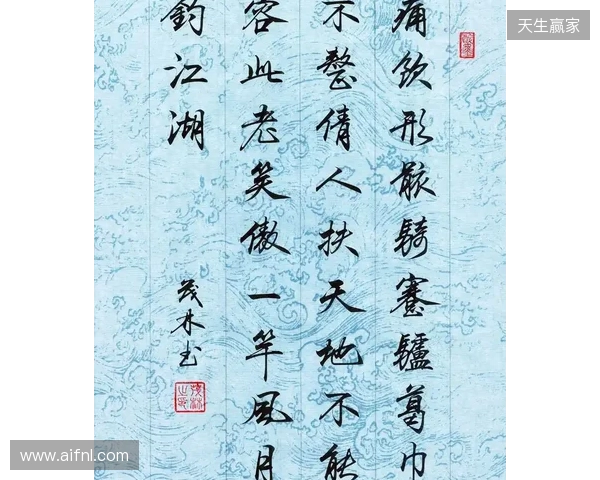 天生赢家
痛飲形骸騎蹇驢葛巾
不整倩人扶天地不能
容此老笑傲一竿風月
釣江湖
茂林书
www.aifnl.com